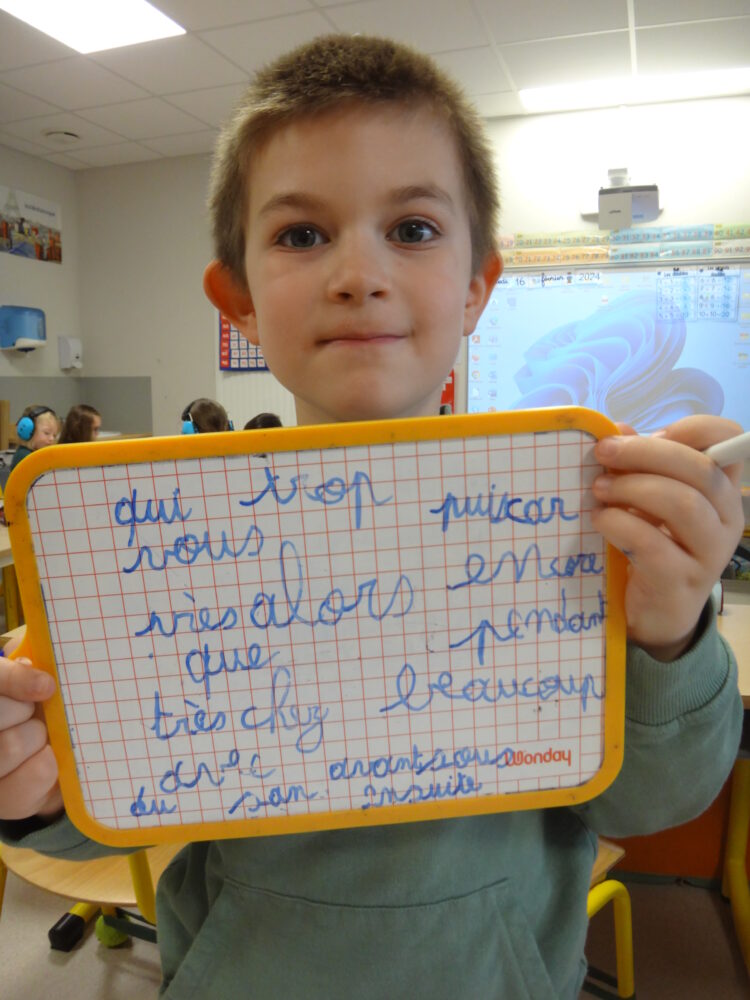 16 février 2024
qui trop puiscar
vous
encore
près alors
pendant
que
beaucoup
très chez
avec avant sous
Wonday
du san ensuite